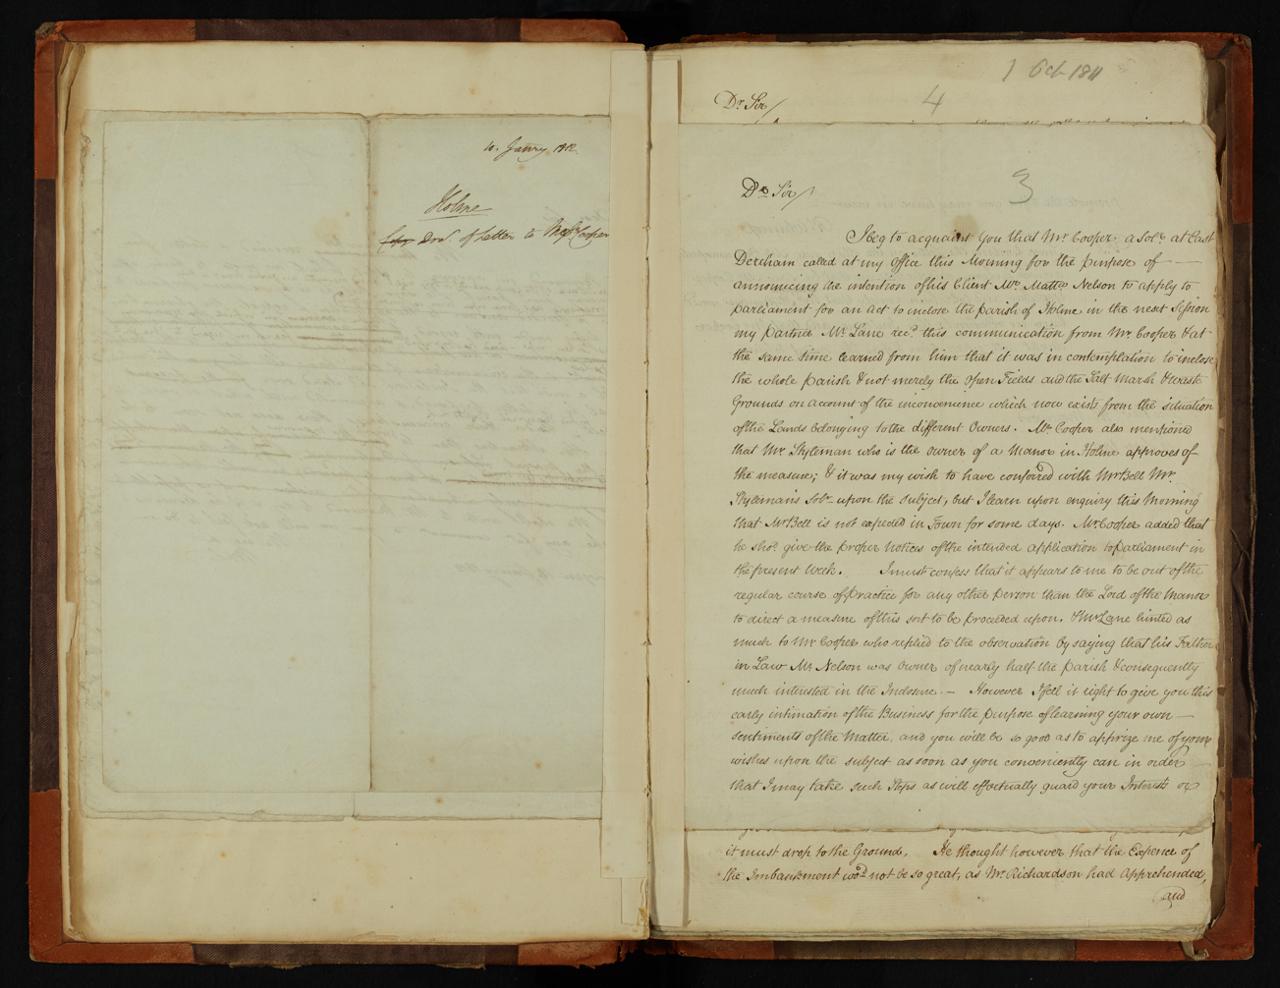 10. Janry 1812
Holme
Copy Drat. of Letter to Messrs Cooper
1 Octr 1811
4
Dr. Sir/
3
Dr. Sir/
I beg to acquaint You that Mr. Cooper a Solr. at East
Dereham called at my Office this Morning for the purpose of —
announcing the intention of his Client Mr. Mattw. Nelson to apply to
parliament for an Act to inclose the parish of Holme in the next Session
my partner Mr. Lane recd. this communication from Mr. Cooper & at
the same time learned from him that it was in contemplation to inclose
the whole parish & not merely the Open Fields and the Salt Marsh & waste
Grounds on account of the inconvenience which now exists from the situation
of the Lands belonging to the different Owners. Mr. Cooper also mentioned
that Mr. Styleman who is the owner of a Manor in Holme approves of
the measure; & it was my wish to have conferred with Mr Bell Mr.
Styleman's Solr. upon the subject, but I learn upon enquiry this Morning
that Mr Bell is not expected in Town for some days. Mr. Cooper added that
he shod. give the proper Notices of the intended application to parliament in
the present Week. I must confess that it appears to me to be out of the
regular course of practice for any other person than the Lord of the Manor
to direct a measure of this sort to be proceeded upon. & Mr Lane hinted as
much to Mr Cooper who replied to the observation by saying that his Father
in Law Mr. Nelson was Owner of nearly half the parish & consequently
much interested in the Inclosure. — However I feel it right to give you this
early intimation of the Business for the purpose of learning your own —
sentiments of the Matter, and you will be so good as to apprize me of your
wishes upon the subject as soon as you conveniently can in order
that I may take such Steps as will effectually guard your Interests or
it must drop to the Ground. He thought however that the Expence of
the Imbankment wod. not be so great, as Mr. Richardson had Apprehended,
and